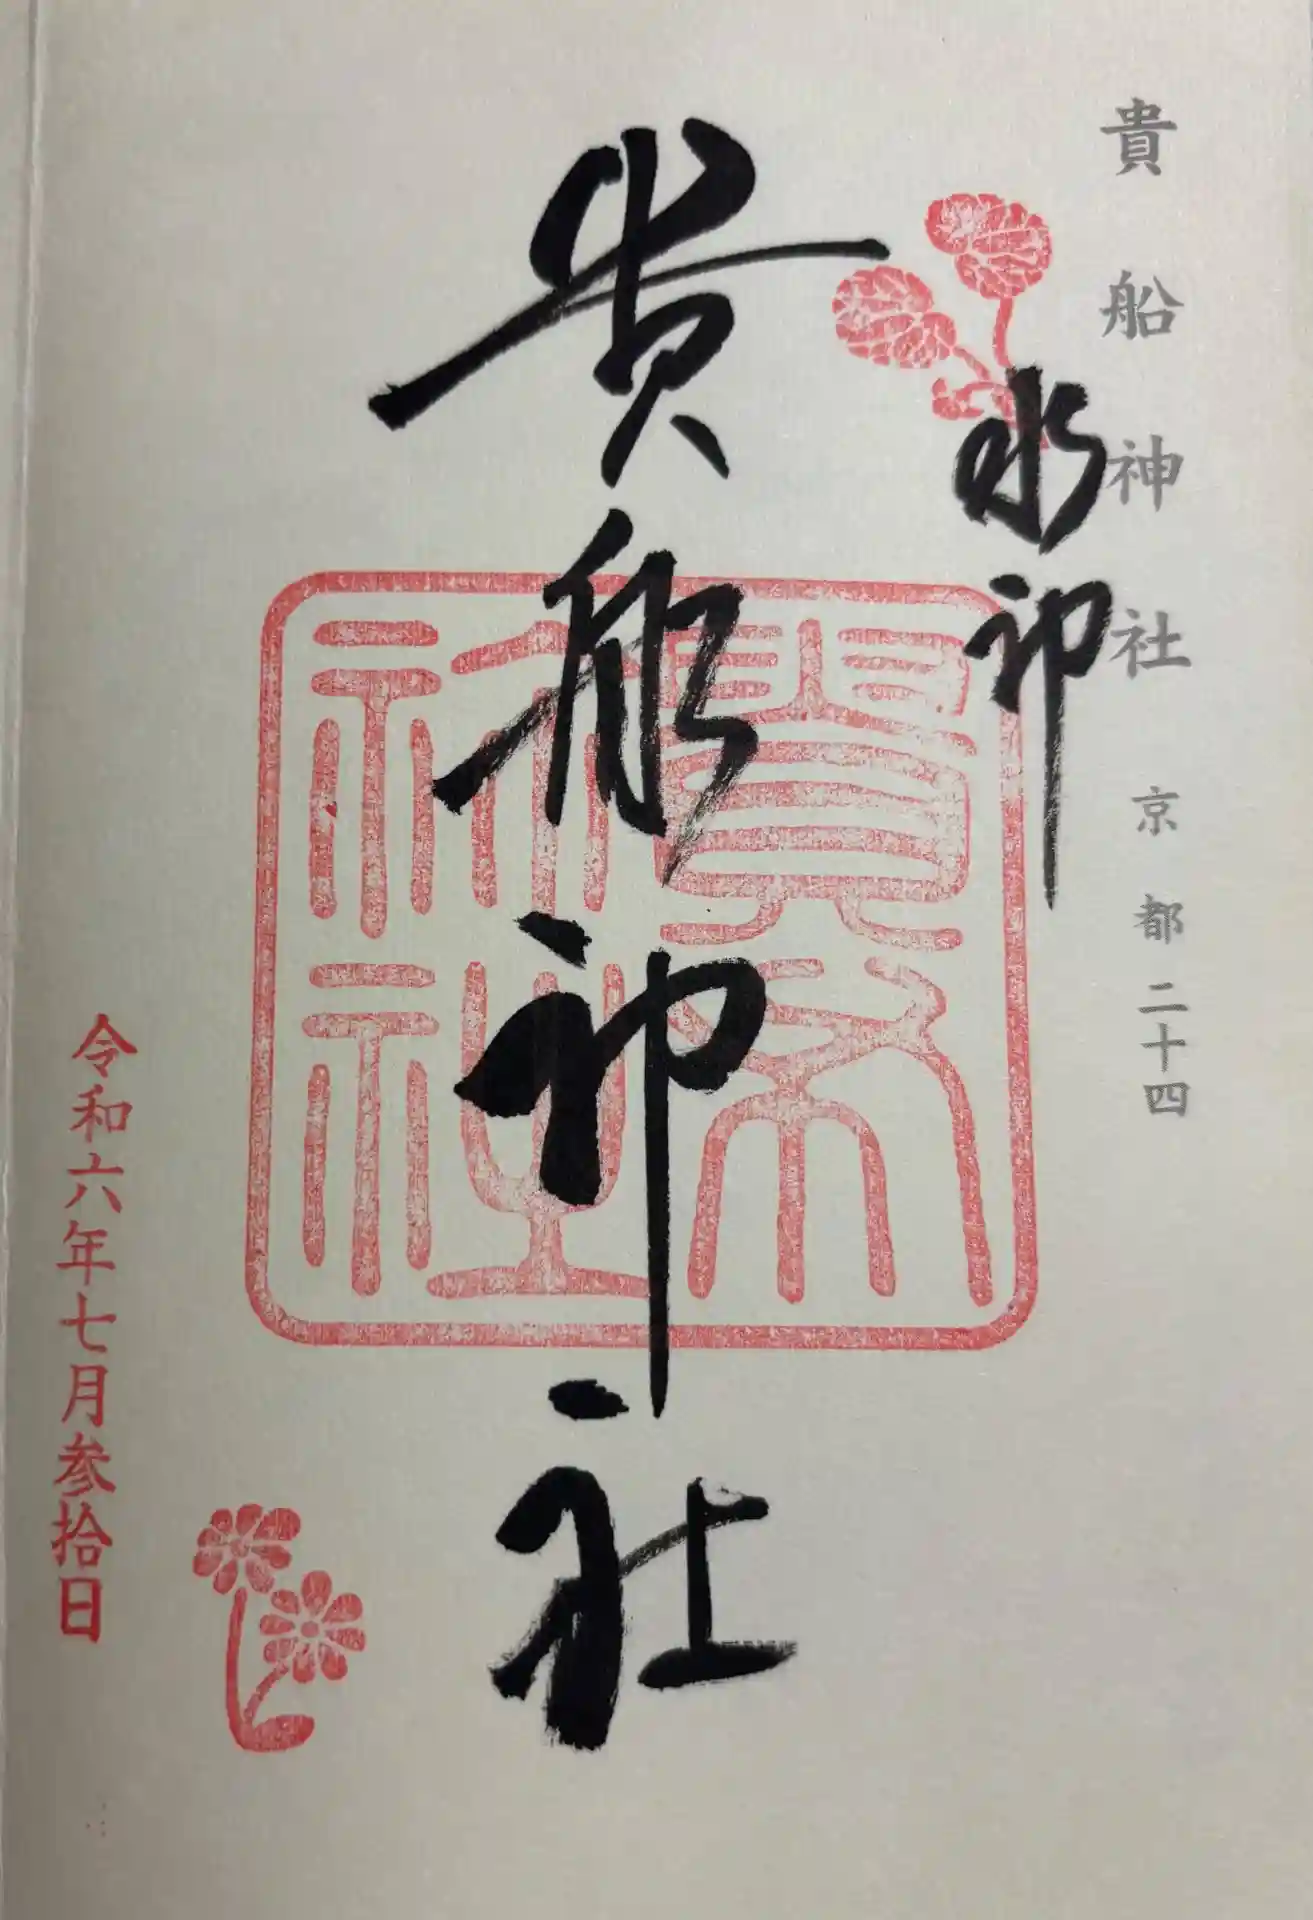 貴船神社 京都 二十四
水神
貴船神社
貴船神社
令和六年七月参拾日